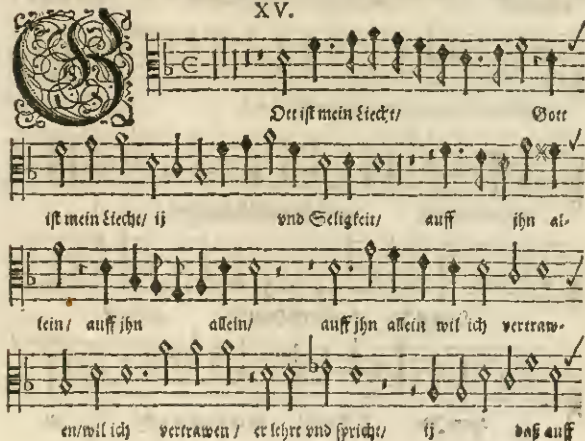 XV.
GOtt ist mein Liecht/ Gott
ist mein Liecht/ ij vnd Seligkeit/ auff jhn al-
lein/ auff jhn allein/ auff jhn allein wil ich vertraw-
en/wil ich vertrawen/ er lehrt vnd spricht/ ij- daß auff